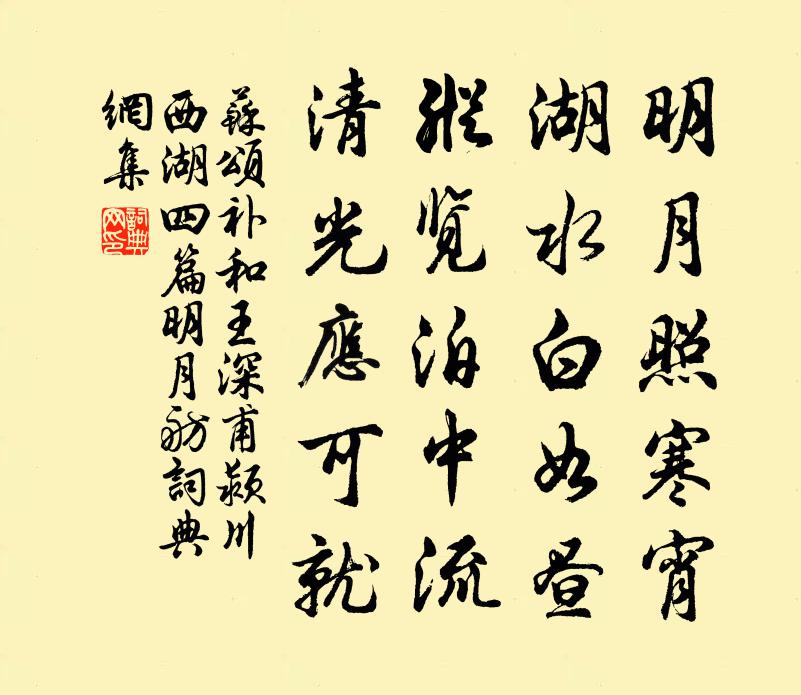 明月照寒宵
湖水白如昼
縱览泊中流
清光應可就
蘇頌补和王深甫颍川
西湖四篇明月舫詞典
網集
詞典网印